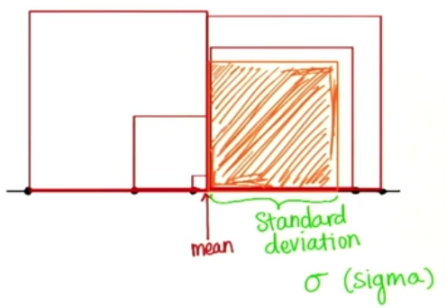 mean
Standard
deviation
σ (sigma)